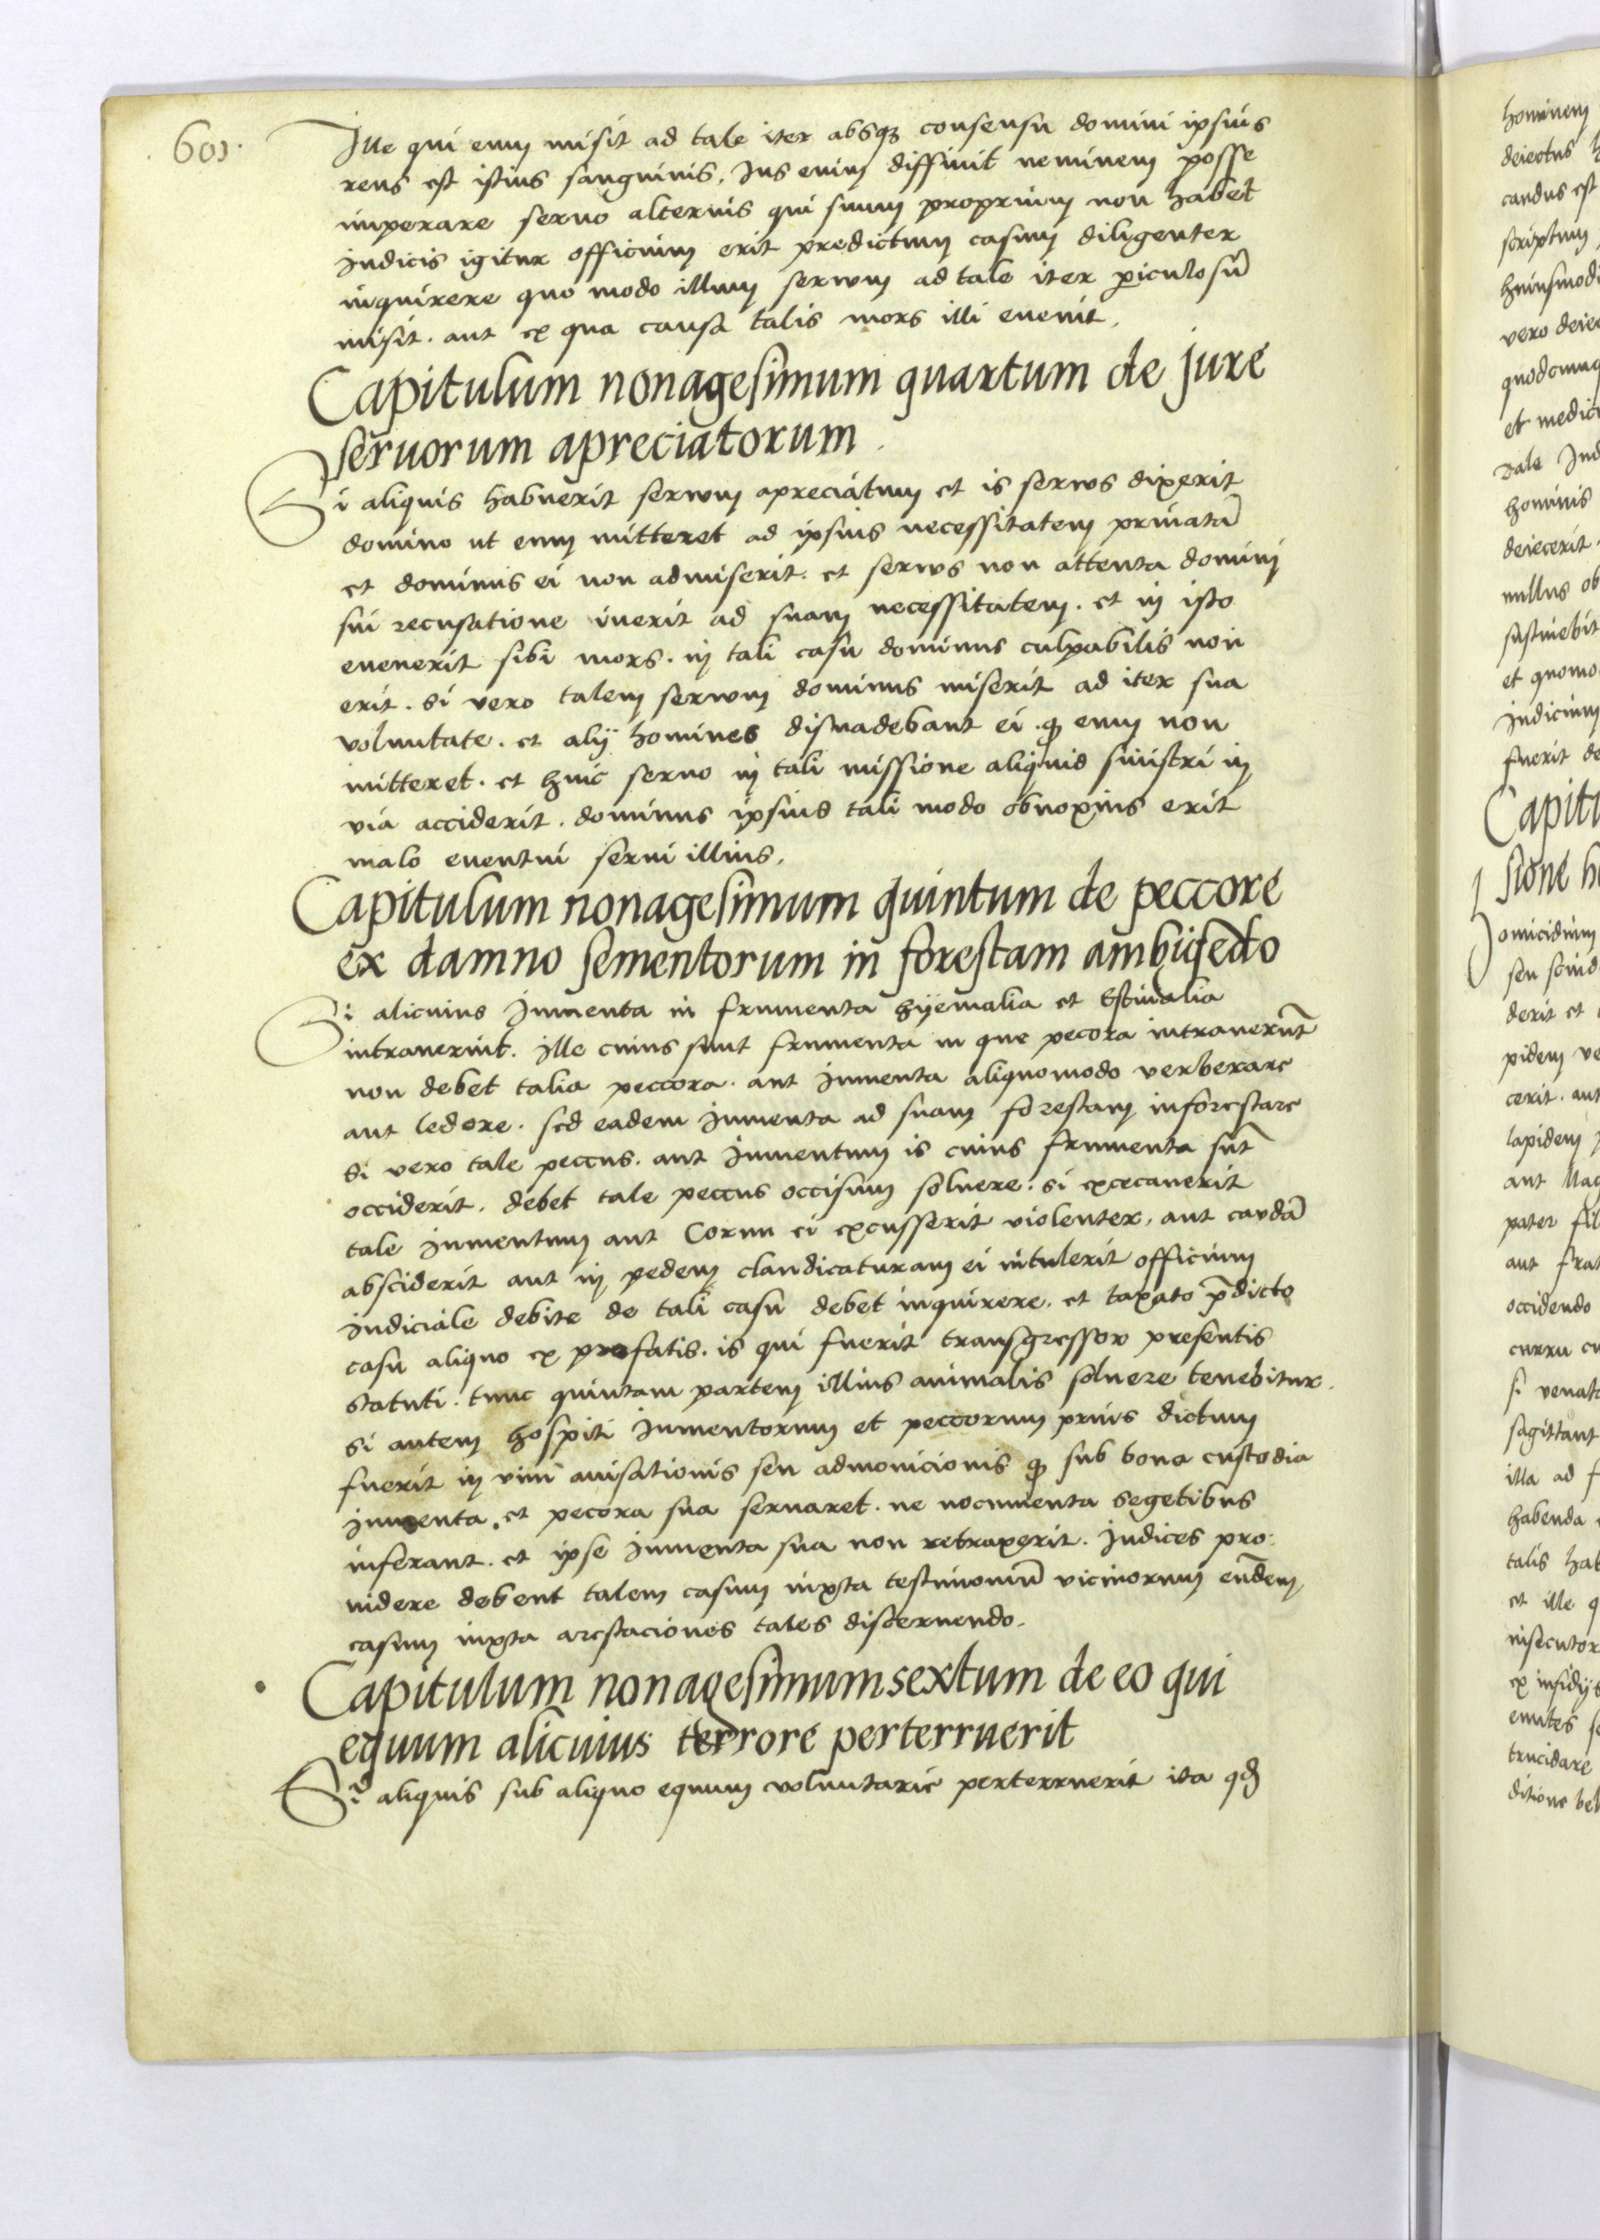 601.
Ille qui eum misit ad tale iter absq3 consensu domini ipsius
reus est istius sanguinis. Ius enim diffinit neminem posse
imperare seruo alterius qui suum proprium non habet
Iudicis igitur officium erit predictum casum diligenter
inquirere quo modo illum serwm ad tale iter ꝑiculosū
misit. aut ex qua causa talis mors illi euenit.
Capitulum nonagesimum quartum de jure
seruorum apreciatorum
Si aliquis habuerit serwm apreciatum et is serws dixerit
domino ut eum mitteret ad ipsius necessitatem priuatā
et dominus ei non admiserit. et serws non attenta domini
sui recusatione iuerit ad suam necessitatem. et in isto
euenerit sibi mors. in tali casu dominus culpabilis non
erit. si vero talem serwm dominus miserit ad iter sua
voluntate. et alij homines disuadebant ei. ꝙ eum non
mitteret. et huic seruo in tali missione aliquid sinistri in
via acciderit. dominus ipsius tali modo obnoxius erit
malo euentui serui illius.
Capitulum nonagesimum quintum de peccore
ex damno sementorum in forestam ambigēdo
Si alicuius Iumenta in frumenta hyemalia et Estiualia
intrauerint. ille cuius sunt frumenta in que pecora intrauerūt
non debet talia peccora. aut Iumenta aliquomodo verberare
aut ledere. sed eadem Iumenta ad suam forestam inforestare
Si vero tale peccus. aut Iumentum is cuius frumenta sūt
occiderit. debet tale peccus occisum soluere. si excecauerit
tale Iumentum aut Cornu ei excusserit violenter. aut caudā
absciderit aut in pedem claudicaturam ei intulerit officium
Iudiciale debite de tali casu debet inquirere. et taxato p̄dicto
casu aliquo ex prefatis. is qui fuerit transgressor presentis
statuti. tunc quintam partem illius animalis soluere tenebitur.
si autem hospiti Iumentorum et peccorum prius dictum
fuerit in vim auisationis seu admonicionis ꝙ sub bona custodia
Iumenta. et pecora sua seruaret. ne nocumenta segetibus
inferant. et ipse Iumenta sua non retraxerit. Iudices pro-
uidere debent talem casum iuxta testimoniū vicinorum eūdem
casum iuxta arestaciones tales discernendo.
Capitulum nonagesimumsextum de eo qui
equum alicuius terrore perterruerit
Si aliquis sub aliquo equum voluntarie perterruerit ita qđ
hominem
deiectus
candus est
scriptum
huiusmodi
et medic
hominis
deiecerit.
nullus ob
sustinebit
Iudicium
fuerit de
Capitu
sione h
omicidium
derit et
pidem ve
cerit. aut
lapidem
pater fil
aut frat
occidendo
curru cu
si venat
sagittant
illa ad f
habenda
talis hab
et ille q
insecutor
ex insidijs
trucidare